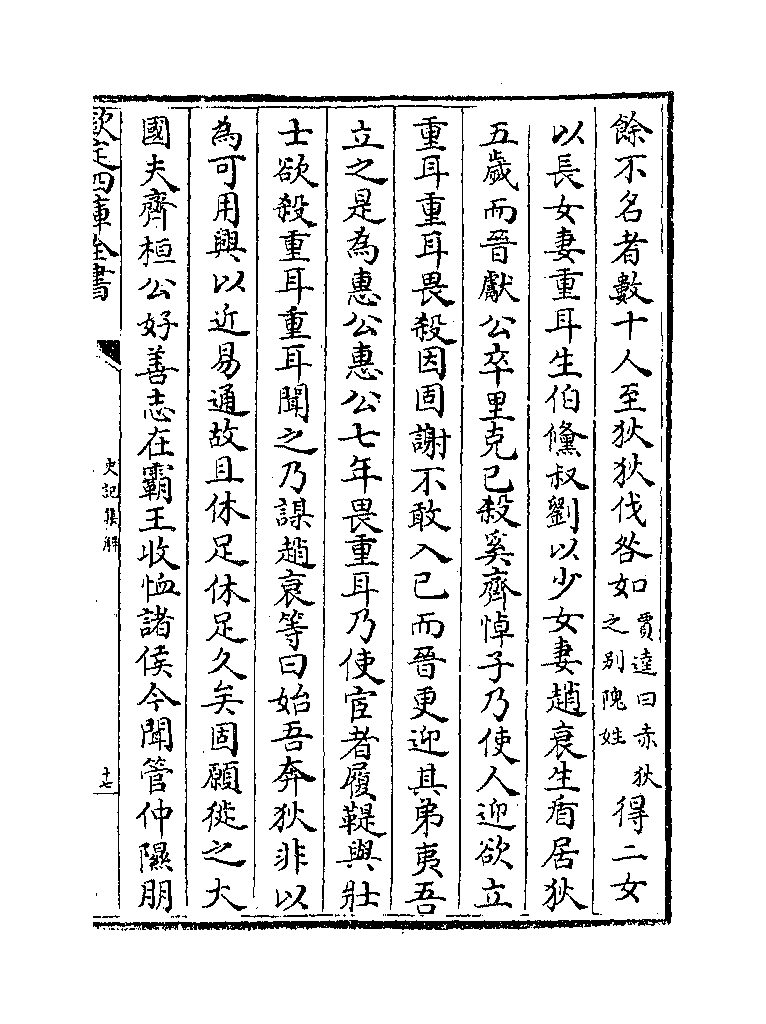 餘不名者數十人至狄狄伐咎如賈逵曰赤狄之别隗姓得二女
以長女妻重耳生伯鯈叔劉以少女妻趙衰生盾居狄
五歲而晉獻公卒里克已殺奚齊悼子乃使人迎欲立
重耳重耳畏殺因固謝不敢入已而晉更迎其弟夷吾
立之是為惠公惠公七年畏重耳乃使宦者履鞮與壯
士欲殺重耳重耳聞之乃謀趙衰等曰始吾奔狄非以
為可用興以近易通故且休足休足久矣固願徙之大
國夫齊桓公好善志在霸王收恤諸侯今聞管仲隰朋
欽定四庫全書
史記集解
十七